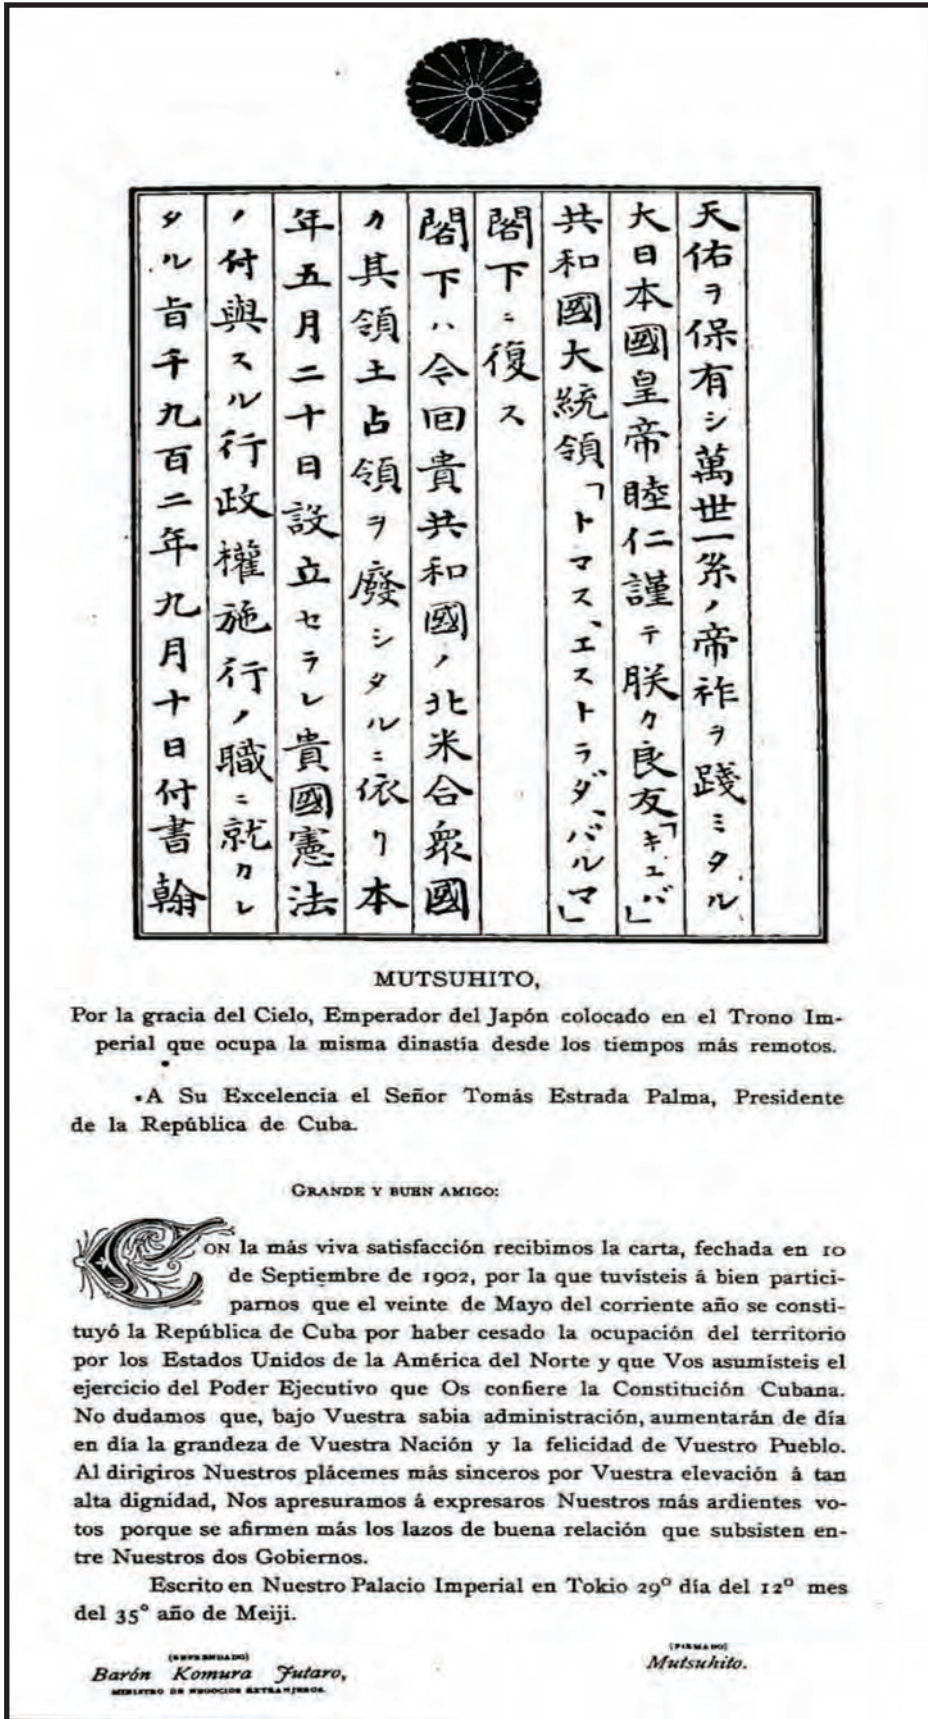 天佑ヲ保有シ萬世一系ノ帝祚ヲ踐ミタル
大日本國皇帝睦仁謹テ朕カ良友「キユバ」
共和國大統領「トマス、エストラダ、パルマ」
閣下ニ復ス
閣下ハ今回貴共和國ノ北米合衆國
カ其領土占領ヲ廢シタルニ依リ本
年五月二十日設立セラレ貴國憲法
ノ付與スル行政權施行ノ職ニ就カレ
タル旨千九百二年九月十日付書翰
MUTSUHITO,
Por la gracia del Cielo, Emperador del Japón colocado en el Trono Im-
perial que ocupa la misma dinastía desde los tiempos más remotos.
A Su Excelencia el Señor Tomás Estrada Palma, Presidente
de la República de Cuba.
GRANDE Y BUEN AMIGO:
CON la más viva satisfacción recibimos la carta, fechada en 10
de Septiembre de 1902, por la que tuvísteis á bien partici-
parnos que el veinte de Mayo del corriente año se consti-
tuyó la República de Cuba por haber cesado la ocupación del territorio
por los Estados Unidos de la América del Norte y que Vos asumísteis el
ejercicio del Poder Ejecutivo que Os confiere la Constitución Cubana.
No dudamos que, bajo Vuestra sabia administración, aumentarán de día
en día la grandeza de Vuestra Nación y la felicidad de Vuestro Pueblo.
Al dirigiros Nuestros plácemes más sinceros por Vuestra elevación á tan
alta dignidad, Nos apresuramos á expresaros Nuestros más ardientes vo-
tos porque se afirmen más los lazos de buena relación que subsisten en-
tre Nuestros dos Gobiernos.
Escrito en Nuestro Palacio Imperial en Tokio 29º día del 12º mes
del 35º año de Meiji.
(REFRENDADO)
Barón Komura Jutaro,
MINISTRO DE NEGOCIOS EXTRANJEROS.
(FIRMADO)
Mutsuhito.